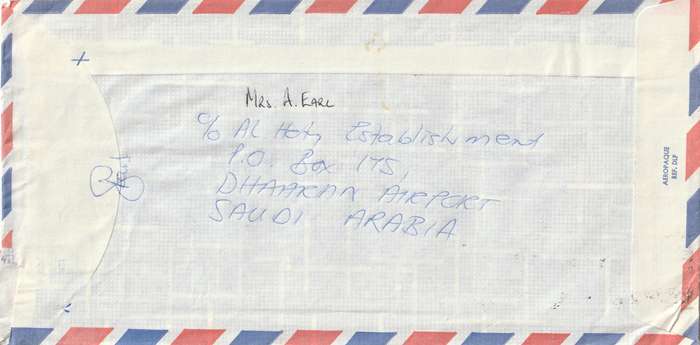 Mrs. A. Earl
c/o Al Hoty Establishment
P.O. Box 175,
DHAHRAN AIRPORT
SAUDI ARABIA
AEROPAQUE
REF. DLP